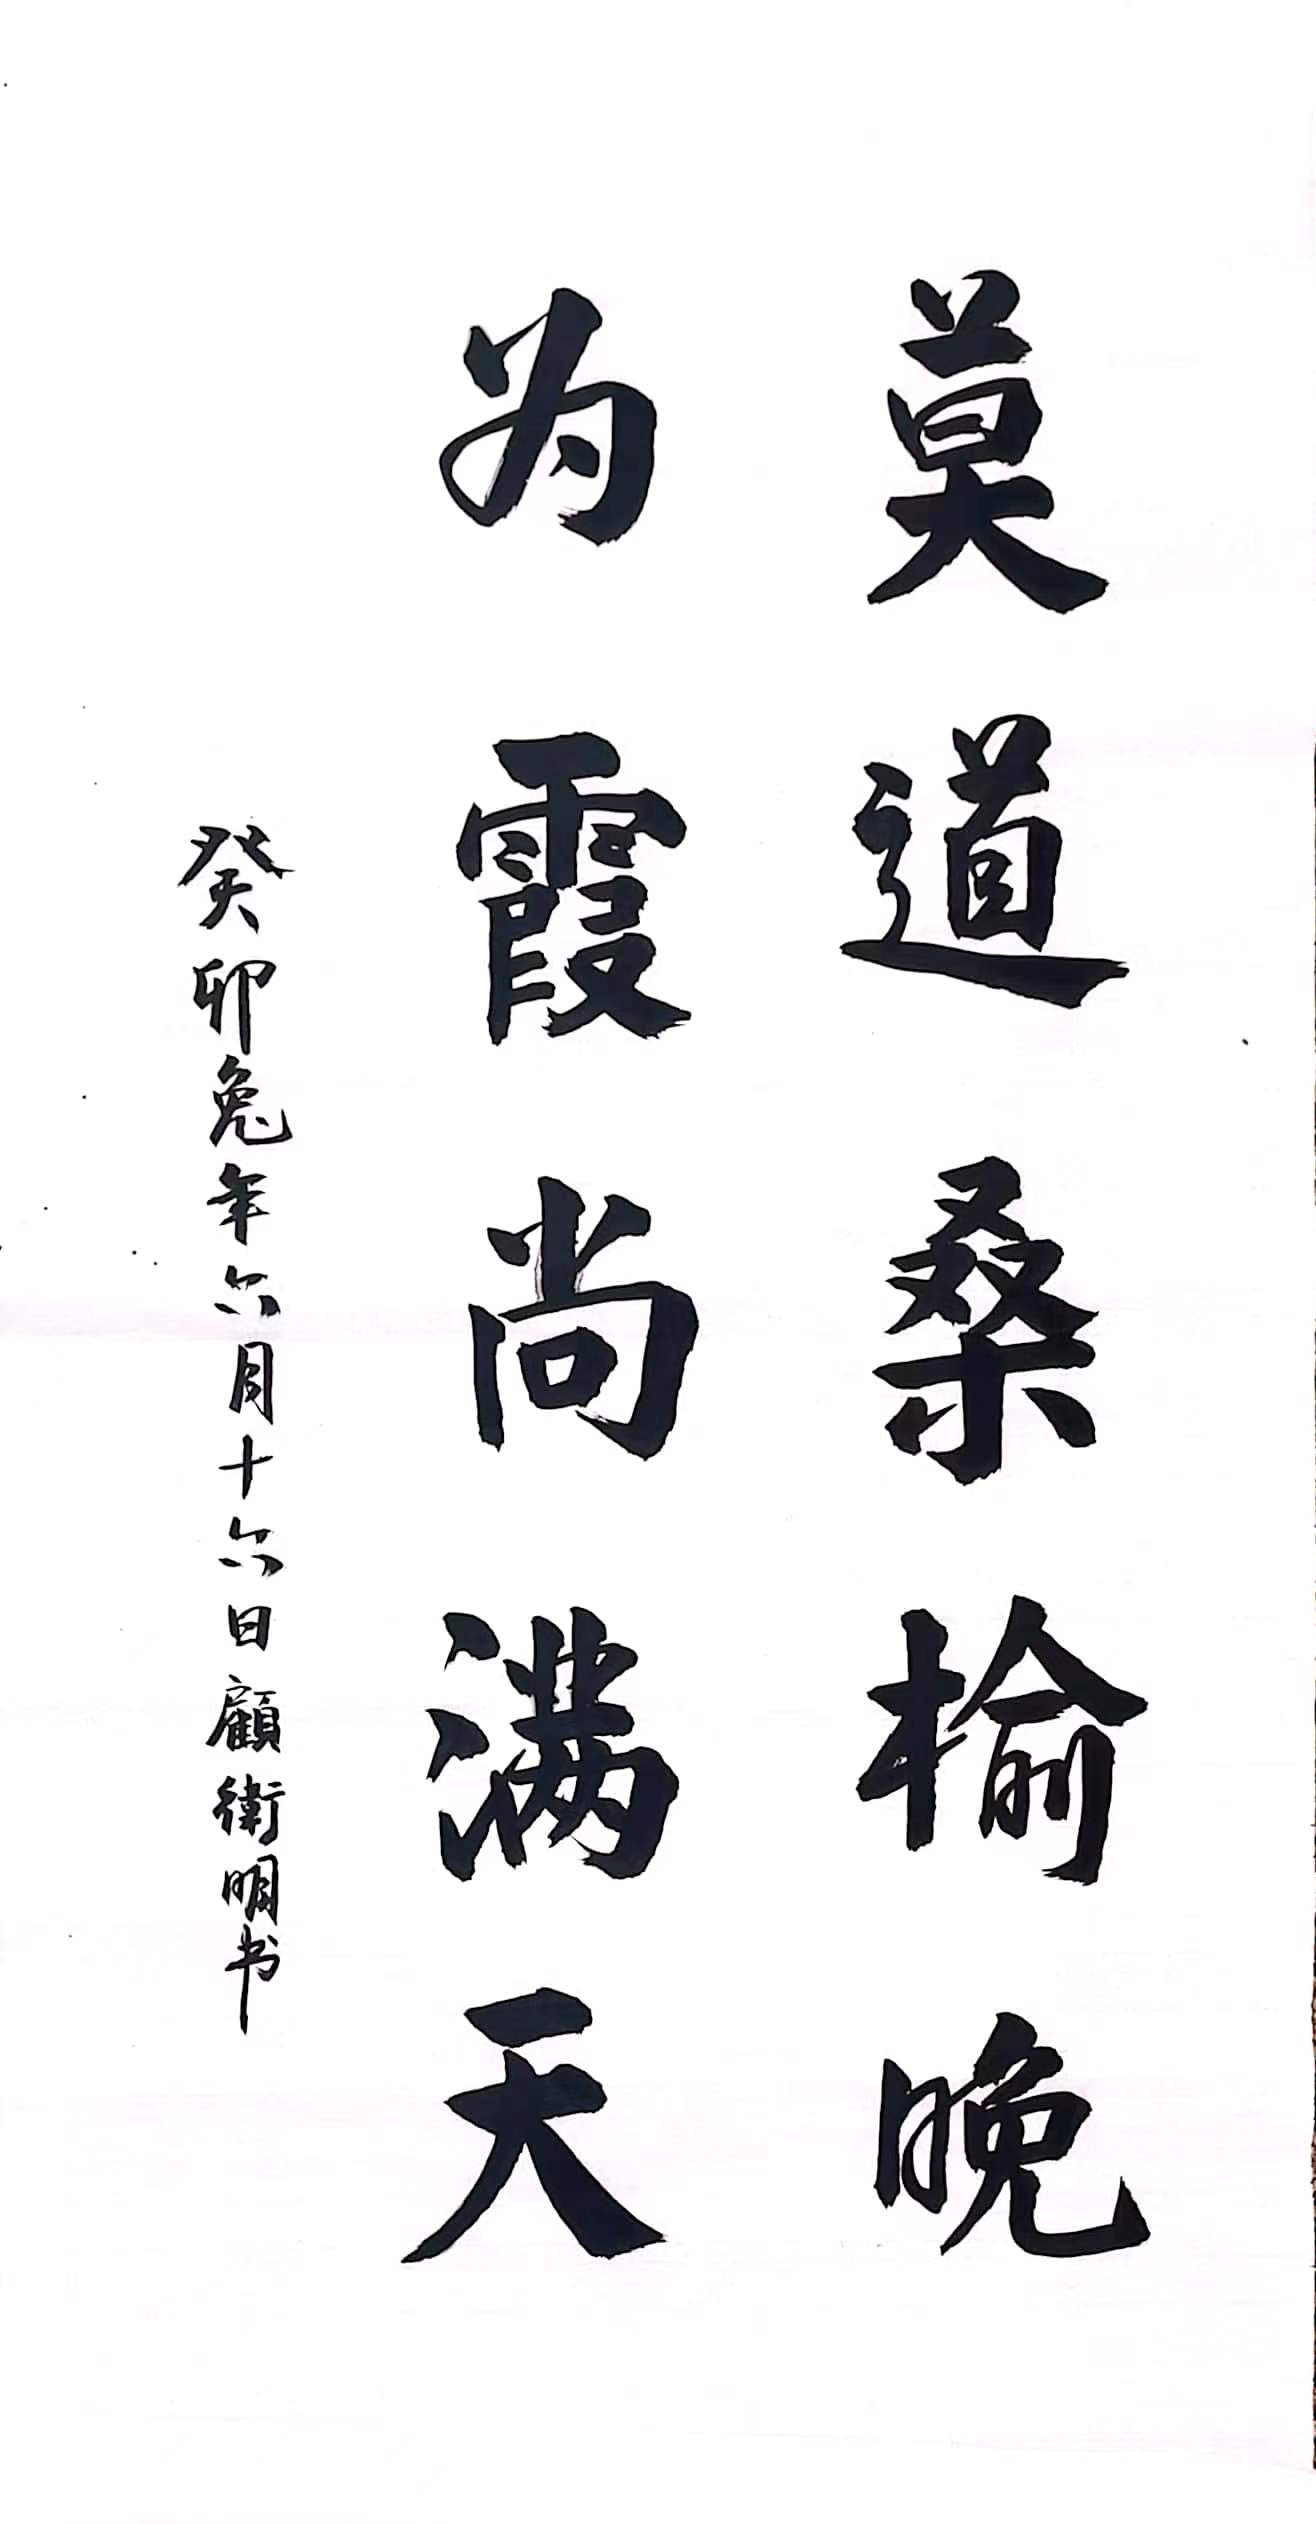 莫道桑榆晚
为霞尚满天
癸卯兔年六月十六日顧衛明书